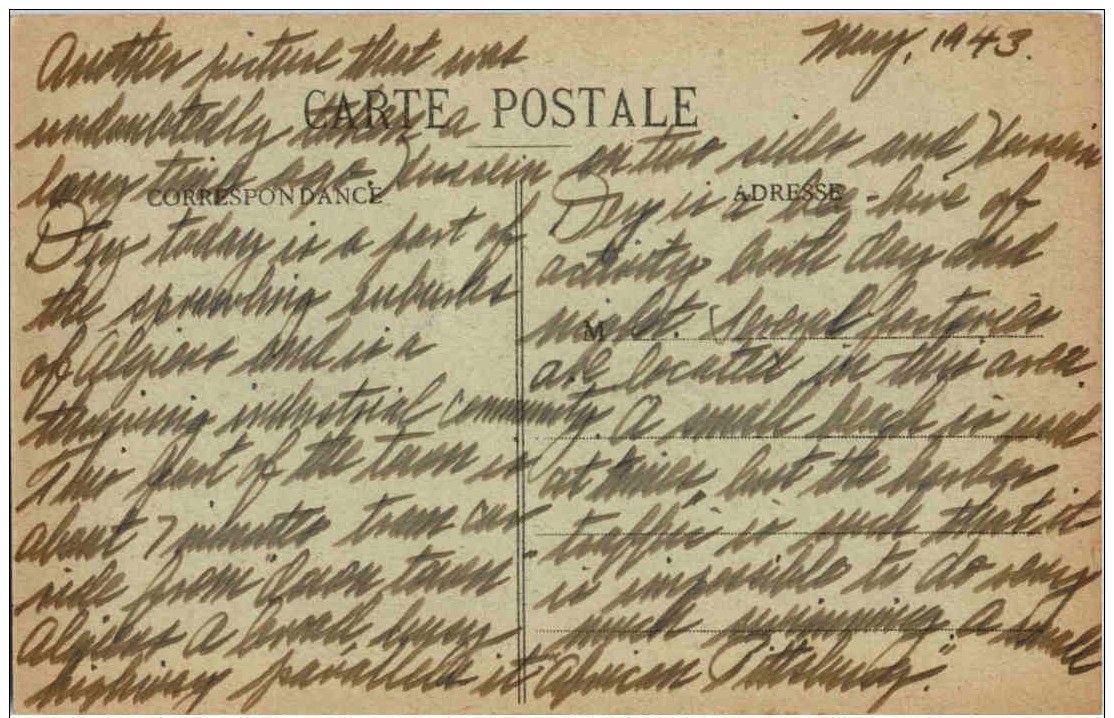 May, 1943.
Another picture that was
CARTE POSTALE
undoubtedly taken a
long time ago. Hussein
CORRESPONDANCE
Dey today is a part of
the sprawling suburbs
of Algiers and is a
thriving industrial community.
This part of the town is
about 7 minutes tram car
ride from down town
Algiers. A broad busy
highway parallels it
on two sides and Hussein
ADRESSE
Dey is a bee-hive of
activity both day and
night. Several factories
M
are located in this area.
A small beach is used
at times, but the harbor
traffic is such that it
is impossible to do very
much swimming. A small
African Pittsburg."